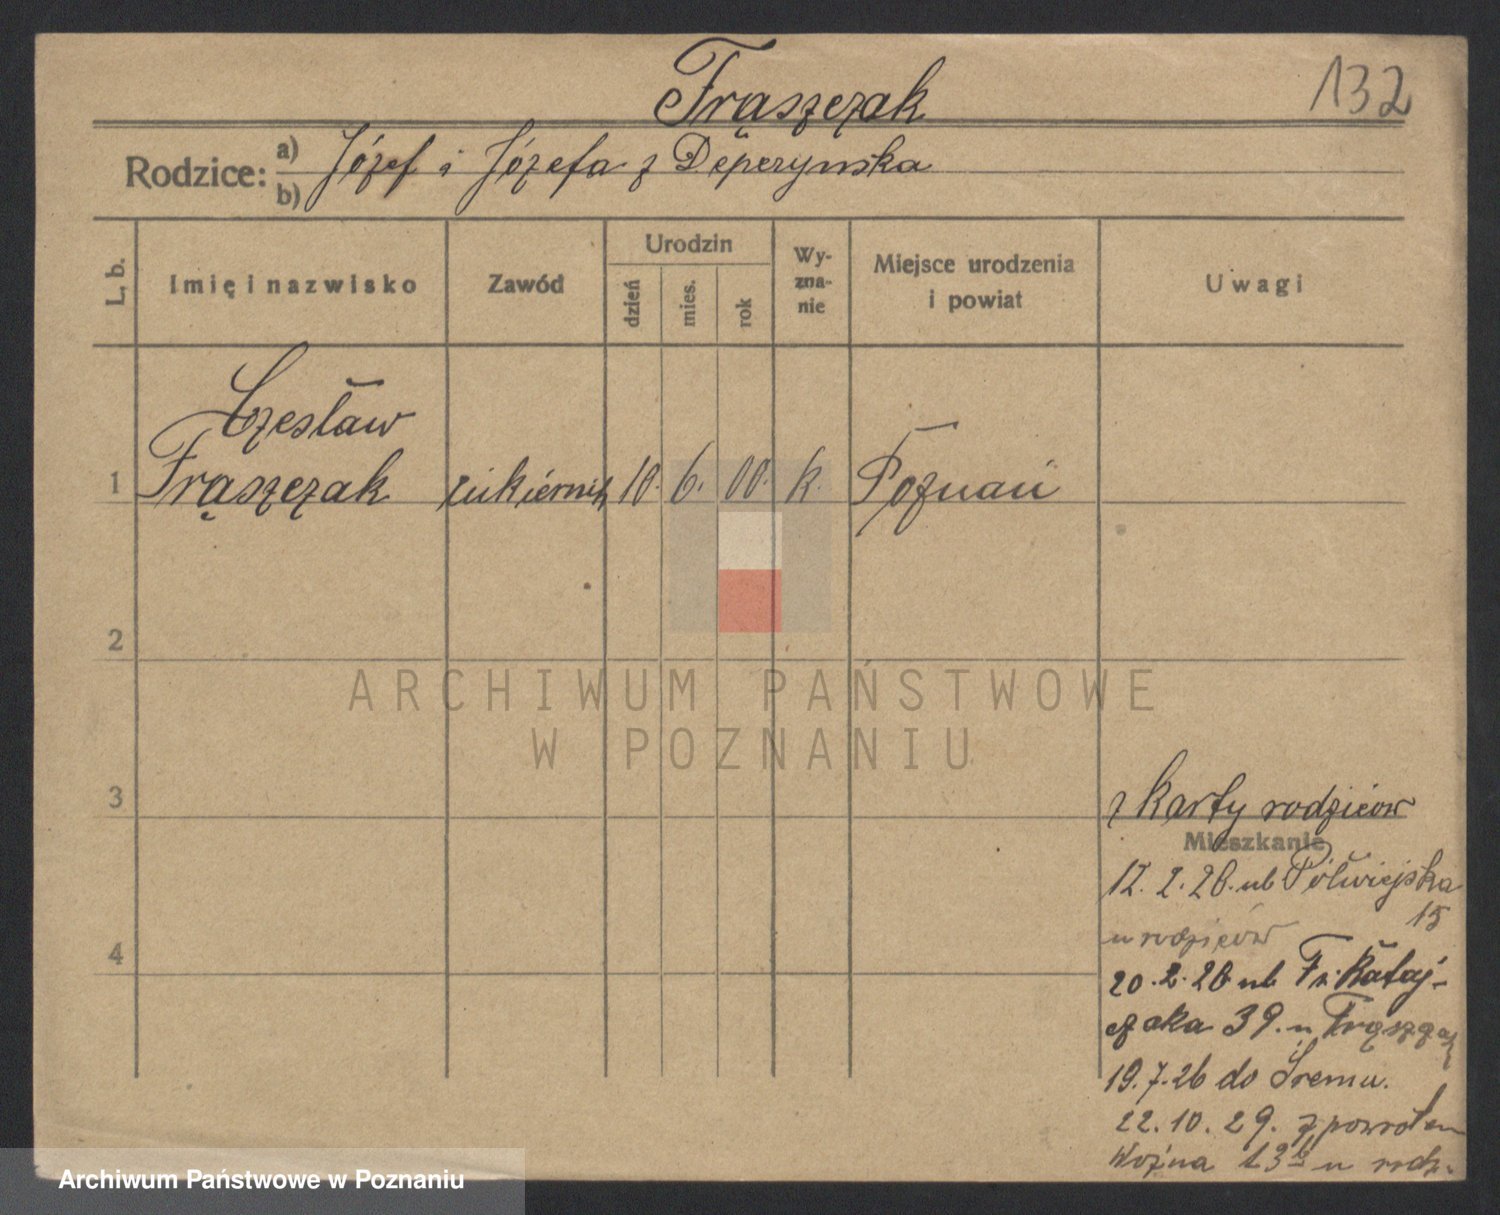 Frąszczak
132
Rodzice: a) b) Józef i Józefa z Deperynska
L. b.
Imię i nazwisko
Zawód
Urodzin
dzień
mies.
rok
Wy-
zna-
nie
Miejsce urodzenia
i powiat
Uwagi
Czesław
1 Frąszczak cukiernik 10. 6. 00. k. Poznań
2
ARCHIWUM PAŃSTWOWE
W POZNANIU
3
z karty rodziców
Mieszkanie
12. 2. 26. ul. Półwiejska
15
u rodziców
4
20. 2. 26 ul. Fr. Rataj-
czaka 39. u Frąszczak
19. 7. 26 do Śremu.
22. 10. 29. z powrotem
Woźna 13 u rodz.
Archiwum Państwowe w Poznaniu